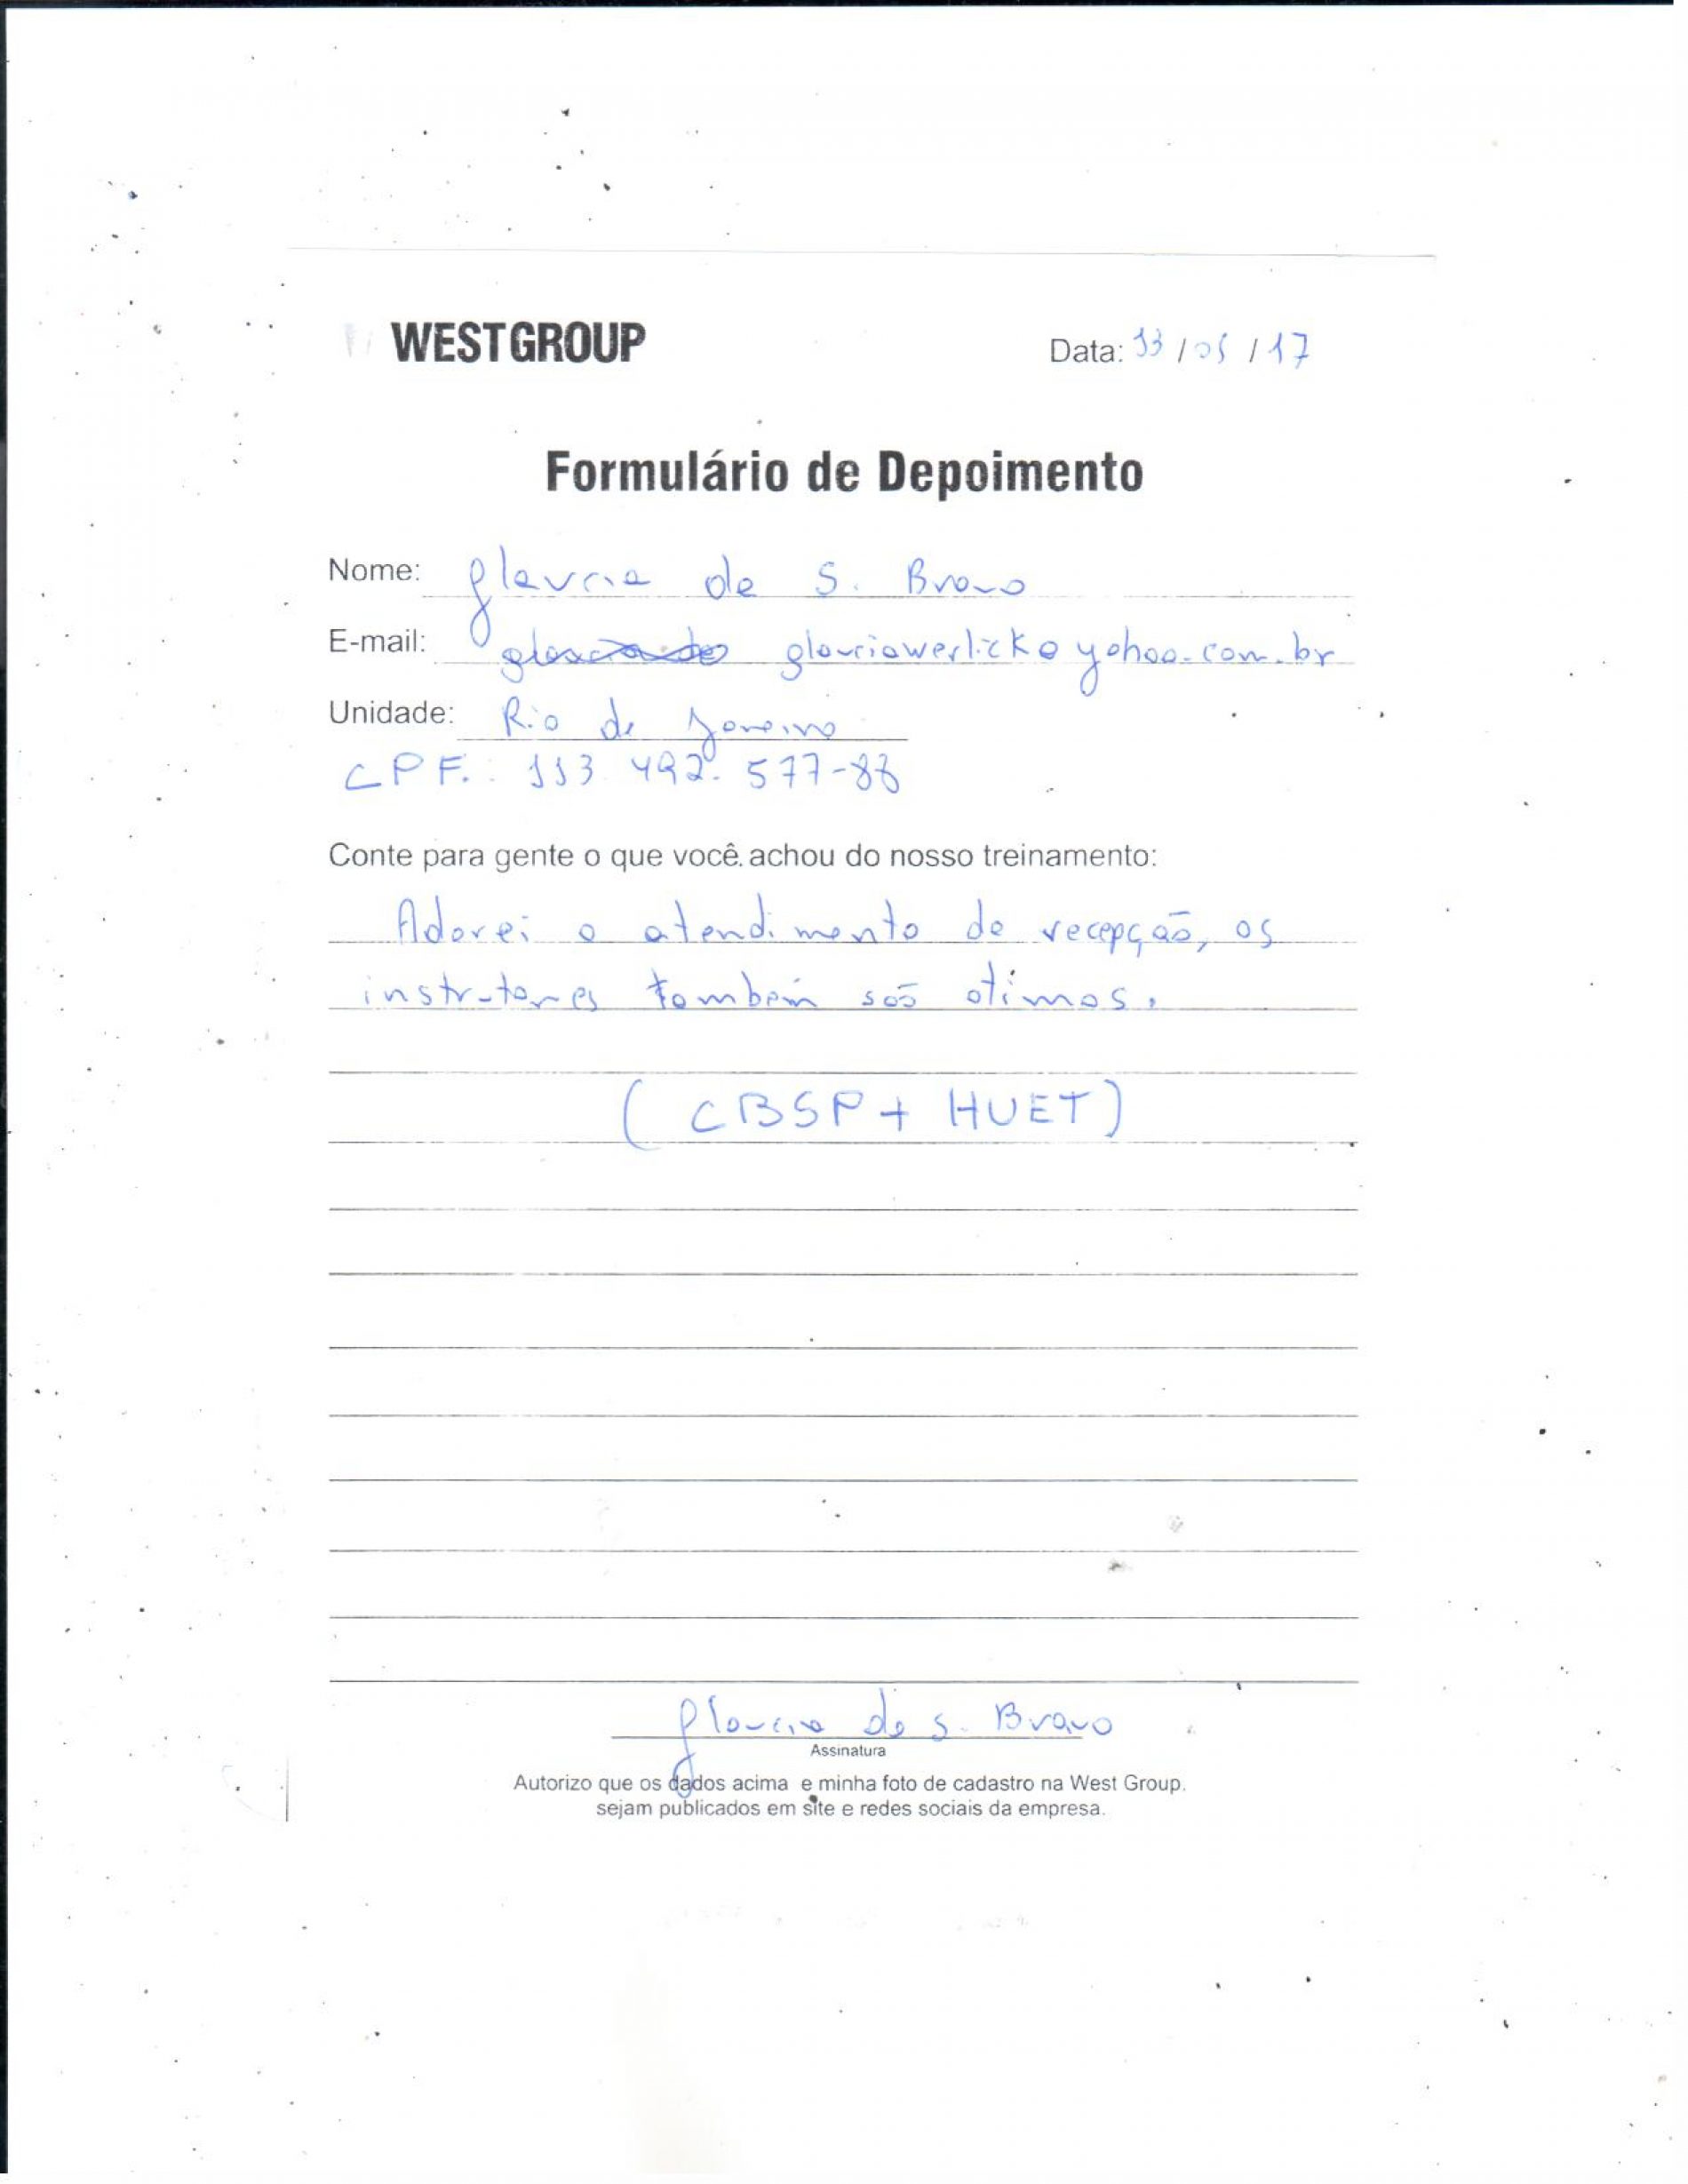 WEST GROUP
Data: 13 / 05 / 17
Formulário de Depoimento
Nome: Glaucia de S. Bravo
E-mail: glauciawerlick@yahoo.com.br
Unidade: Rio de Janeiro
CPF.: 113 492. 577-88
Conte para gente o que você achou do nosso treinamento:
Adorei o atendimento da recepção, os
instrutores também são otimos.
(CBSP + HUET)
Glaucia de S. Bravo
Assinatura
Autorizo que os dados acima e minha foto de cadastro na West Group.
sejam publicados em site e redes sociais da empresa.